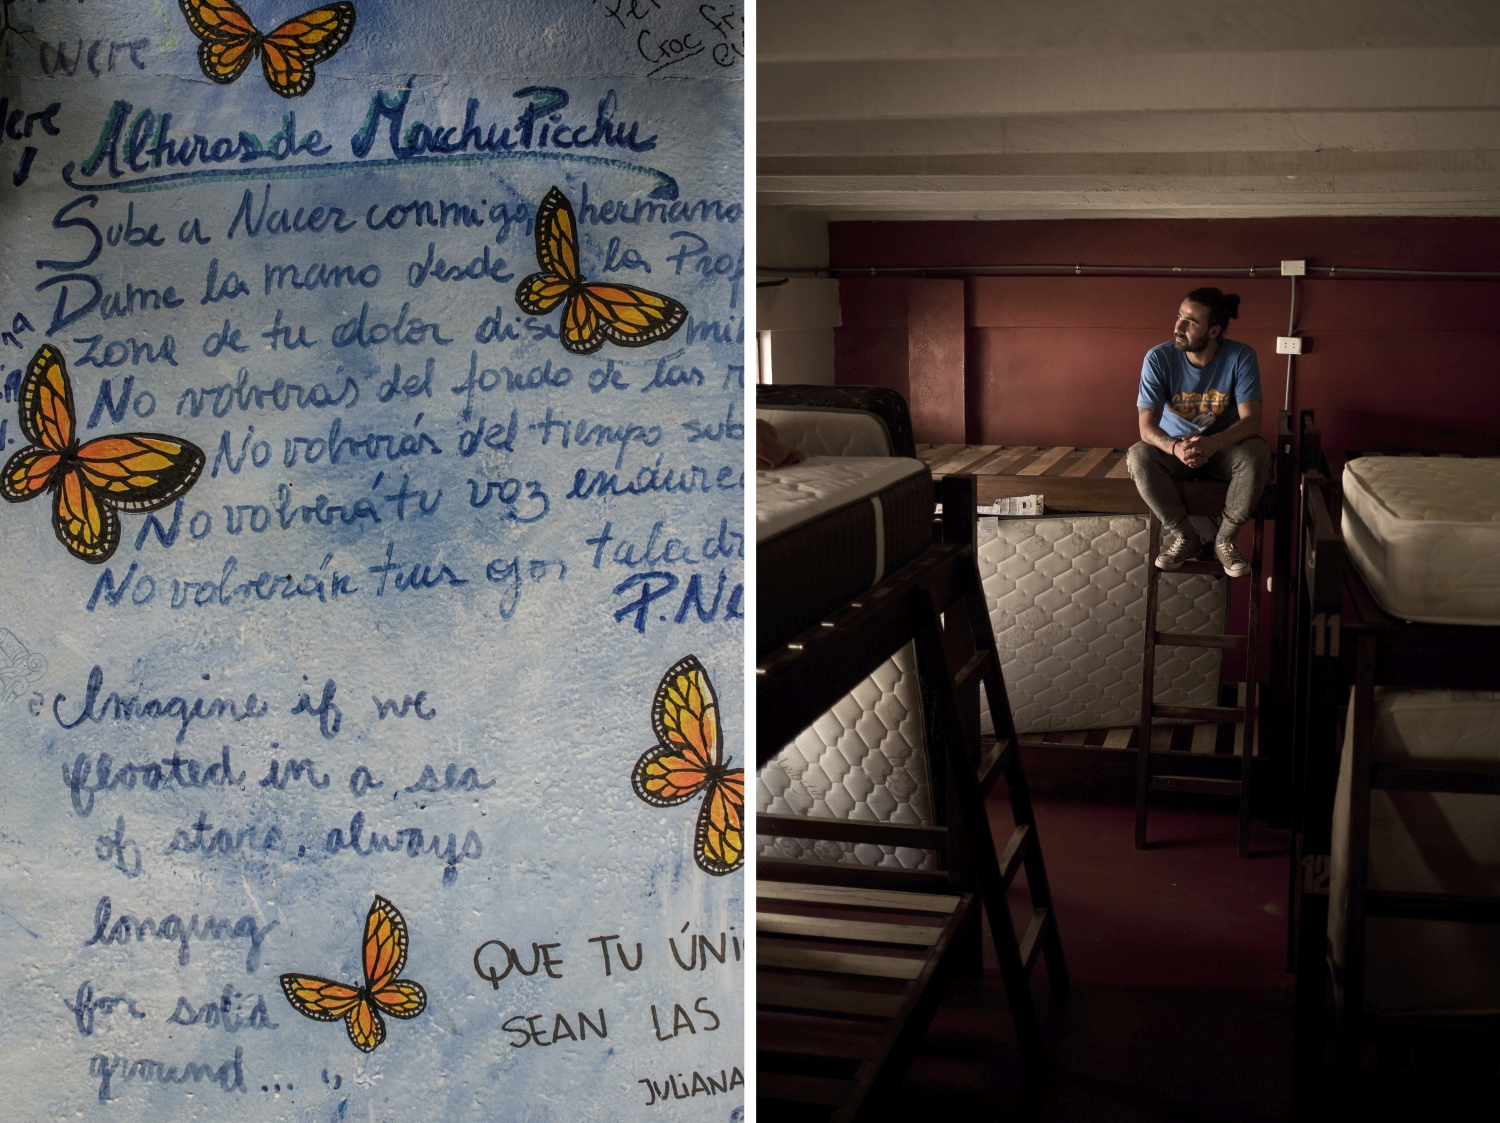 were
Croc
Alturas de Macchu Picchu
Sube a Nacer conmigo, hermano
Dame la mano desde la Prof
zona de tu dolor dise mi
No volverás del fondo de las r
No volverás del tiempo sub
No volverá tu voz endurec
No volverán tus ojos taladr
P. Ne
Imagine if we
floated in a sea
of stars, always
longing
for solid
ground... "
QUE TU ÚNI
SEAN LAS
JULIANA
11
12